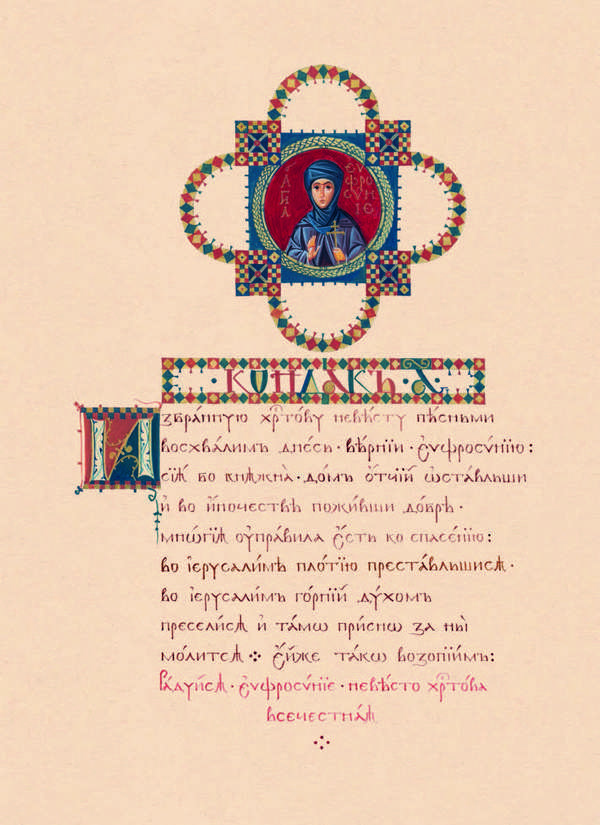 АГІА ЕѴФРОСѴНІЕ
КѠНДАКЪ · А҃
Избра́нную хрⷭ҇то́ву невѣ́сту пѣ́сньми
восхва́лимъ дне́сь · вѣ́рнїи · є҆ѵфросѵ́нїю :
сїѧ̑ бо кнѧжна̀ · до́мъ ѻ҆́тчїй ѡ҆ста́вльши
и҆ во и҆́ночествѣ пожи́вши до́брѣ ·
мнѡ́гїѧ ᲂу҆пра́вила є҆́сть ко спасе́нїю :
во і҆ерусали́мѣ пло́тїю преста́вльшисѧ ·
во і҆ерусали́мъ го́рнїй дꙋ́хомъ
пресели́сѧ и҆ та́мѡ при́снѡ за ны̀
мо́литсѧ ⁘ є҆́йже та́кѡ возопїи́мъ :
Ра́дуйсѧ · є҆ѵфросѵ́нїе · невѣ́сто хрⷭ҇то́ва
всечестна́ѧ